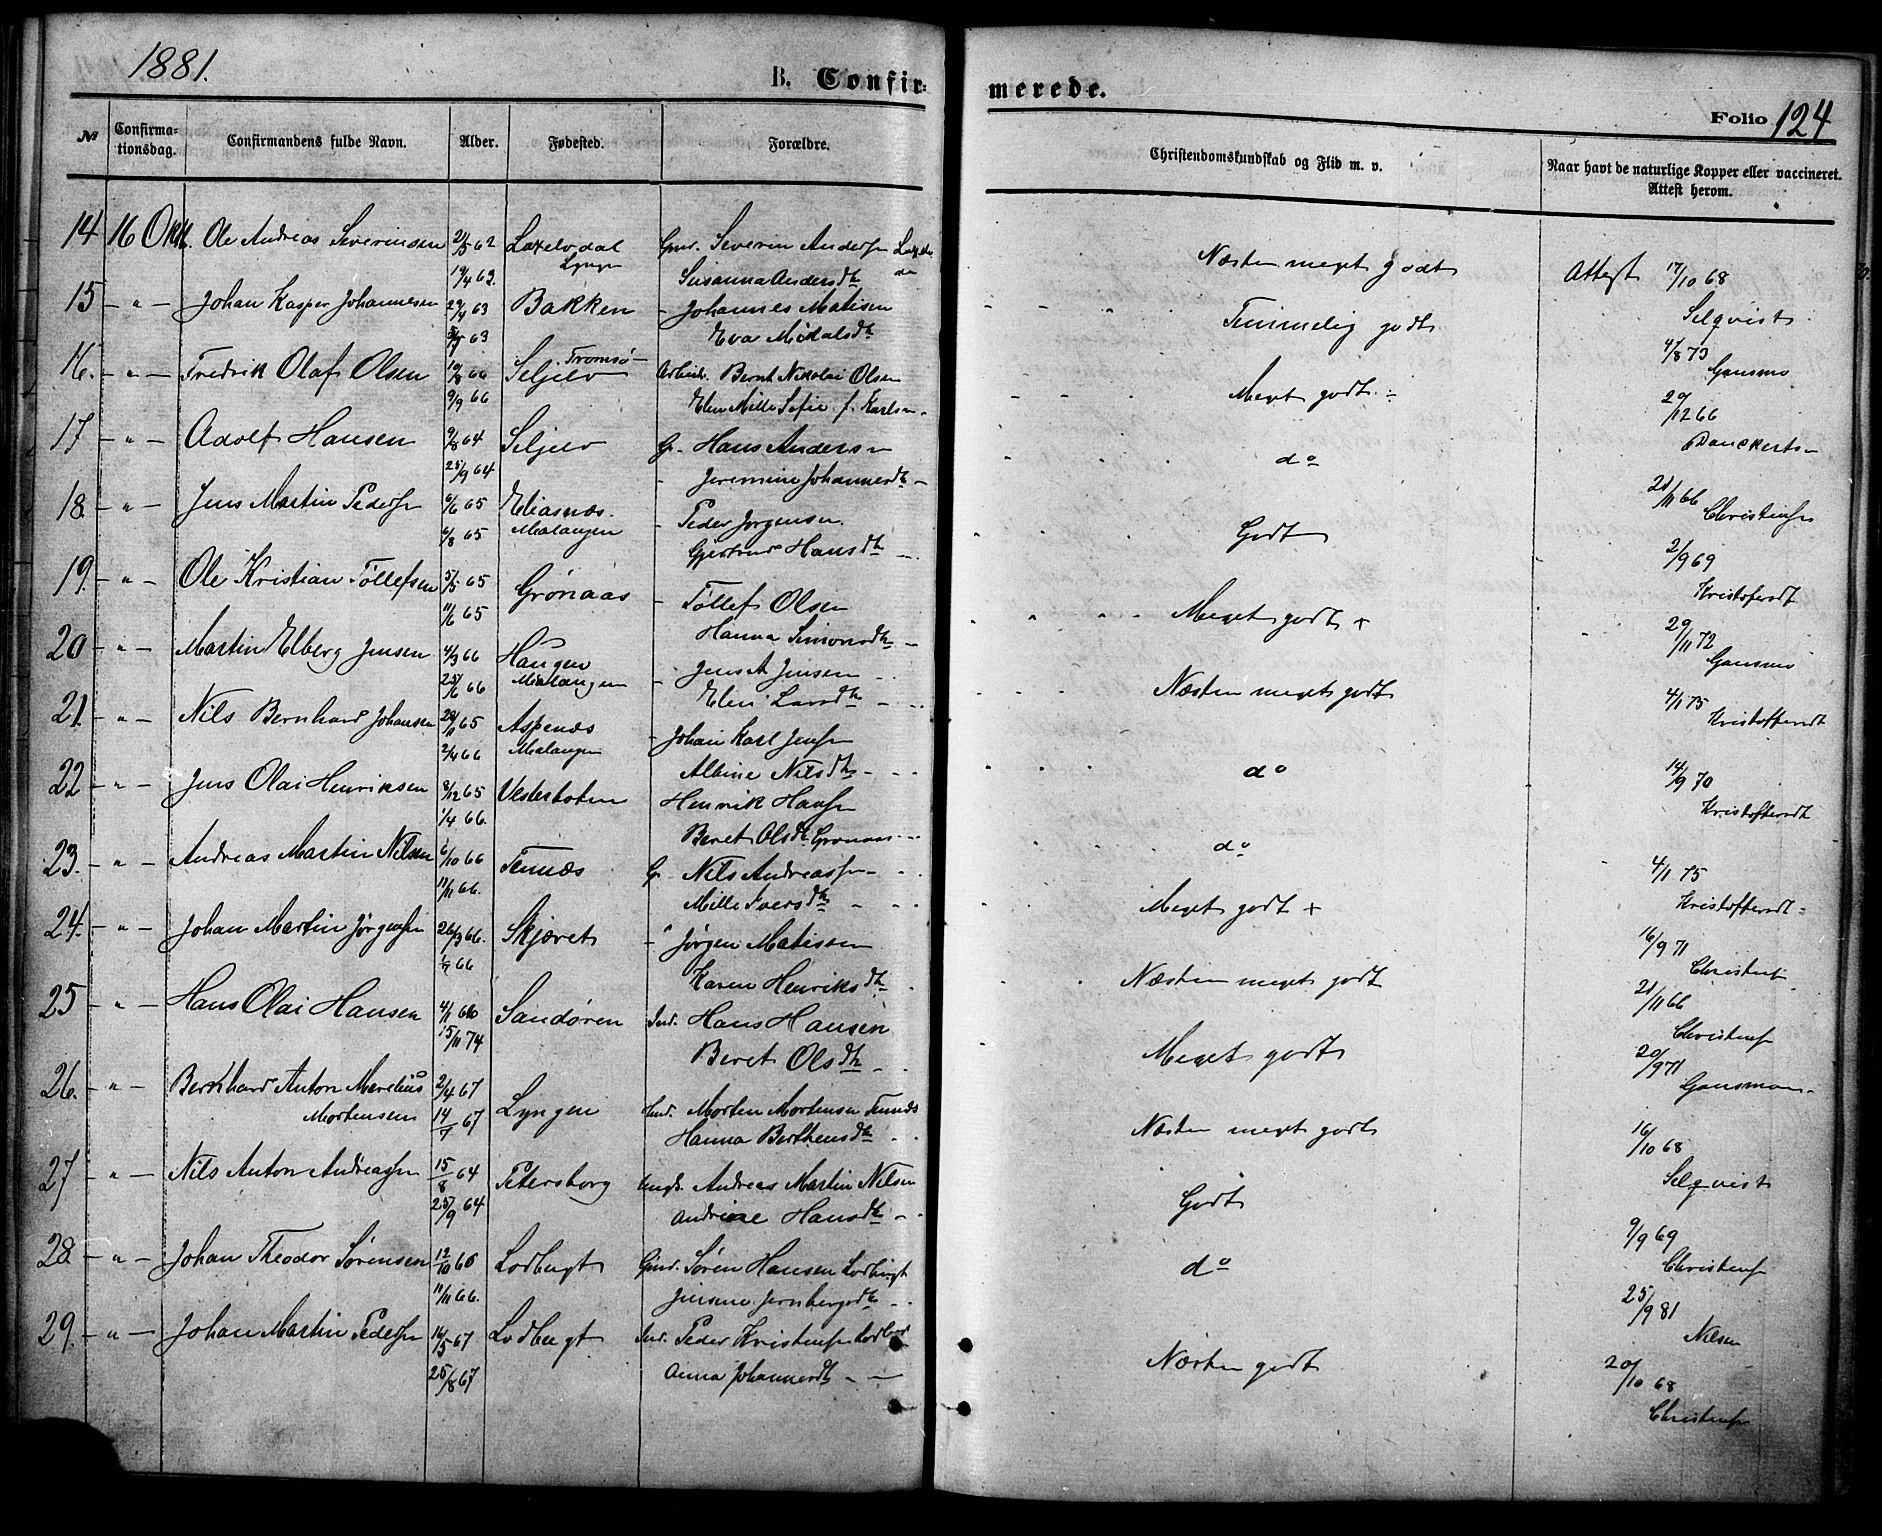 1881.
B. Confir-
merede.
Folio 124
No
Confirma-
tionsdag.
Confirmandens fulde Navn.
Alder.
Fødested.
Forældre.
Christendomskundskab og Flid m. v.
Naar havt de naturlige Kopper eller vaccineret.
Attest herom.
14 16 Okt. Ole Andreas Severinsen 2/5 62 Laxelvdal Gmd. Severin Andersen
19/4 63. Lyngen Susanna Andersdtr do
Næsten meget godt Attest 17/10 68
Selqvist
15 - " - Johan Kasper Johannesen 29/4 63 Bakken - Johannes Matisen
63 Eva Mikalsdtr
Temmelig godt 4/8 73
Gansmo
16. - " - Fredrik Olaf Olsen 19/8 66 Seljelv Tromsø Arbeid. Bernt Nikolai Olsen
9/9 66 Elen Mille Sofie f. Karlsn
Meget godt 29/12 66
Danckertsn
17 - " - Adolf Hansen 9/8 64 Seljelv G. Hans Andersn
25/9 64 Jeremine Johannesdtr -
do 21/11 66
Christensn
18. - " - Jens Martin Pedersn 6/6 65 Eliasnæs. - Peder Jørgensen
6/8 65 Malangen Gjertrud Hansdtr
Godt 2/9 69
Kristoferodt
19. - " - Ole Kristian Tøllefsen 5/5 65 Grønaas - Tøllef Olsen
11/6 65 Hanna Simonsdtr -
Meget godt + 29/11 72
Gansmo
20 - " - Martin Elberg Jensen 4/3 66 Haugen - Jens A Jensen
25/6 66 Malangen Elen Larsdtr
Næsten meget godt 4/1 75
Kristofferodt
21. - " - Nils Bernhard Johansen 28/11 65 Aspenæs - Johan Karl Jensn
2/4 66 Malangen Albine Nilsdtr
do 14/9 70
Kristofferodt
22 - " - Jens Olai Henriksen 8/12 65 Vesterbotn Henrik Hansn
1/4 66. Beret Olsdtr Grønaas
do 4/1 75
Kristofferodt
23. - " - Andreas Martin Nilsen 6/10 66 Tennæs G. Nils Andreassn
11/11 66. Mille Iversdtr
Meget godt + 16/9 71
Christensn
24. - " - Johan Martin Jørgensn 26/3 66. Skjæret - " Jørgen Matissen
66 Karen Henriksdtr
Næsten meget godt 21/11 66
Christensn
25 - " - Hans Olai Hansen 4/1 66 Sandøren Ind. Hans Hansen
15/11 74 Beret Olsdtr
Meget godt 20/9 71
Gansmo
26. - " - Bernhard Anton Marelius 2/4 67 Lyngen Ind. Morten Mortensen Tennæs
Mortensen 14/7 67 Hanna Berthensdtr
Næsten meget godt 16/10 68
Selqvist
27 - " - Nils Anton Andreassn 15/8 64 Petersborg Andreas Martin Nilsen
25/9 64 Andrine Hansdtr -
Godt 9/9 69
Christensn
28. - " - Johan Theodor Sørensen 12/10 66 Lodbugt Gmd. Søren Hansen Lodbugt
11/11 66. Jensine Jernbergsdtr
do 25/9 81
Nilsen
29. - " - Johan Martin Pedersn 16/5 67 Lodbugt Ind. Peder Kristensn
25/8 67 Anna Johannesdtr -
Næsten godt 20/10 68
Christensn